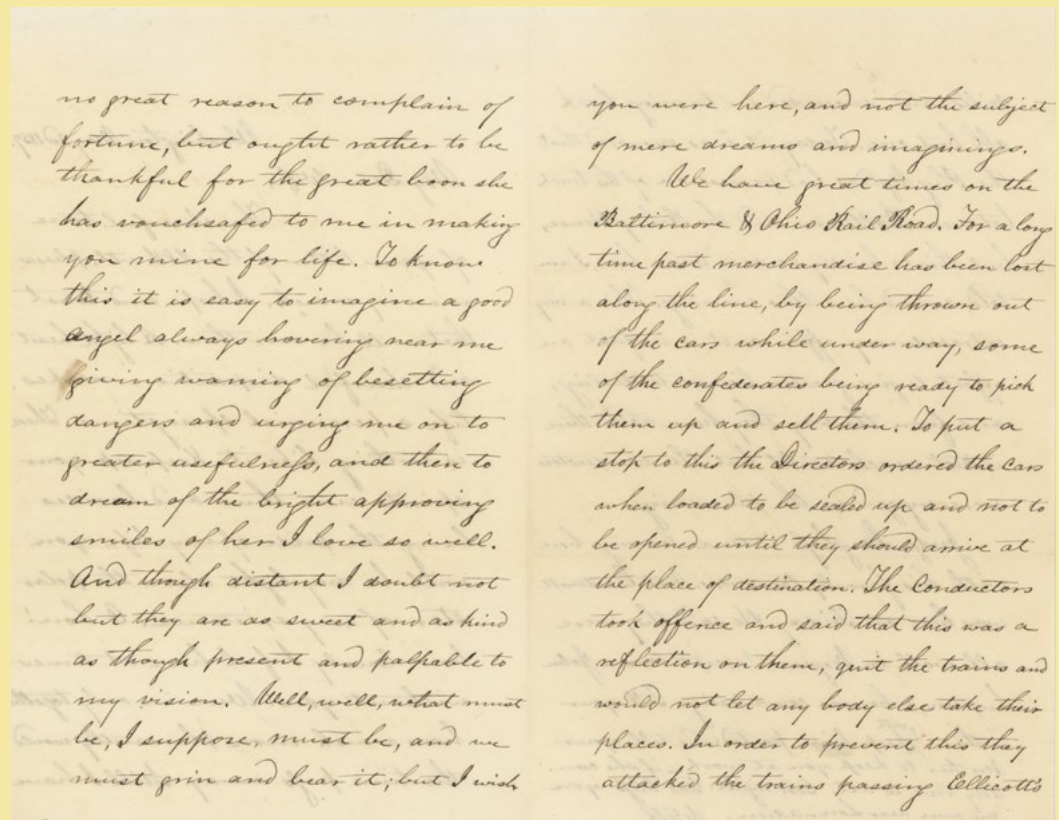 no great reason to complain of
fortune, but ought rather to be
thankful for the great boon she
has vouchsafed to me in making
you mine for life. To know
this it is easy to imagine a good
angel always hovering near me
giving warning of besetting
dangers and urging me on to
greater usefulness, and then to
dream of the bright approving
smiles of her I love so well.
And though distant I doubt not
but they are as sweet and as kind
as though present and palpable to
my vision. Well, well, what must
be, I suppose, must be, and we
must grin and bear it; but I wish
you were here, and not the subject
of mere dreams and imaginings.
We have great times on the
Baltimore & Ohio Rail Road. For a long
time past merchandise has been lost
along the line, by being thrown out
of the cars while under way, some
of the confederates being ready to pick
them up and sell them. To put a
stop to this the Directors ordered the cars
when loaded to be sealed up and not to
be opened until they should arrive at
the place of destination. The Conductors
took offence and said that this was a
reflection on them, quit the trains and
would not let any body else take their
places. In order to prevent this they
attacked the trains passing Ellicott's